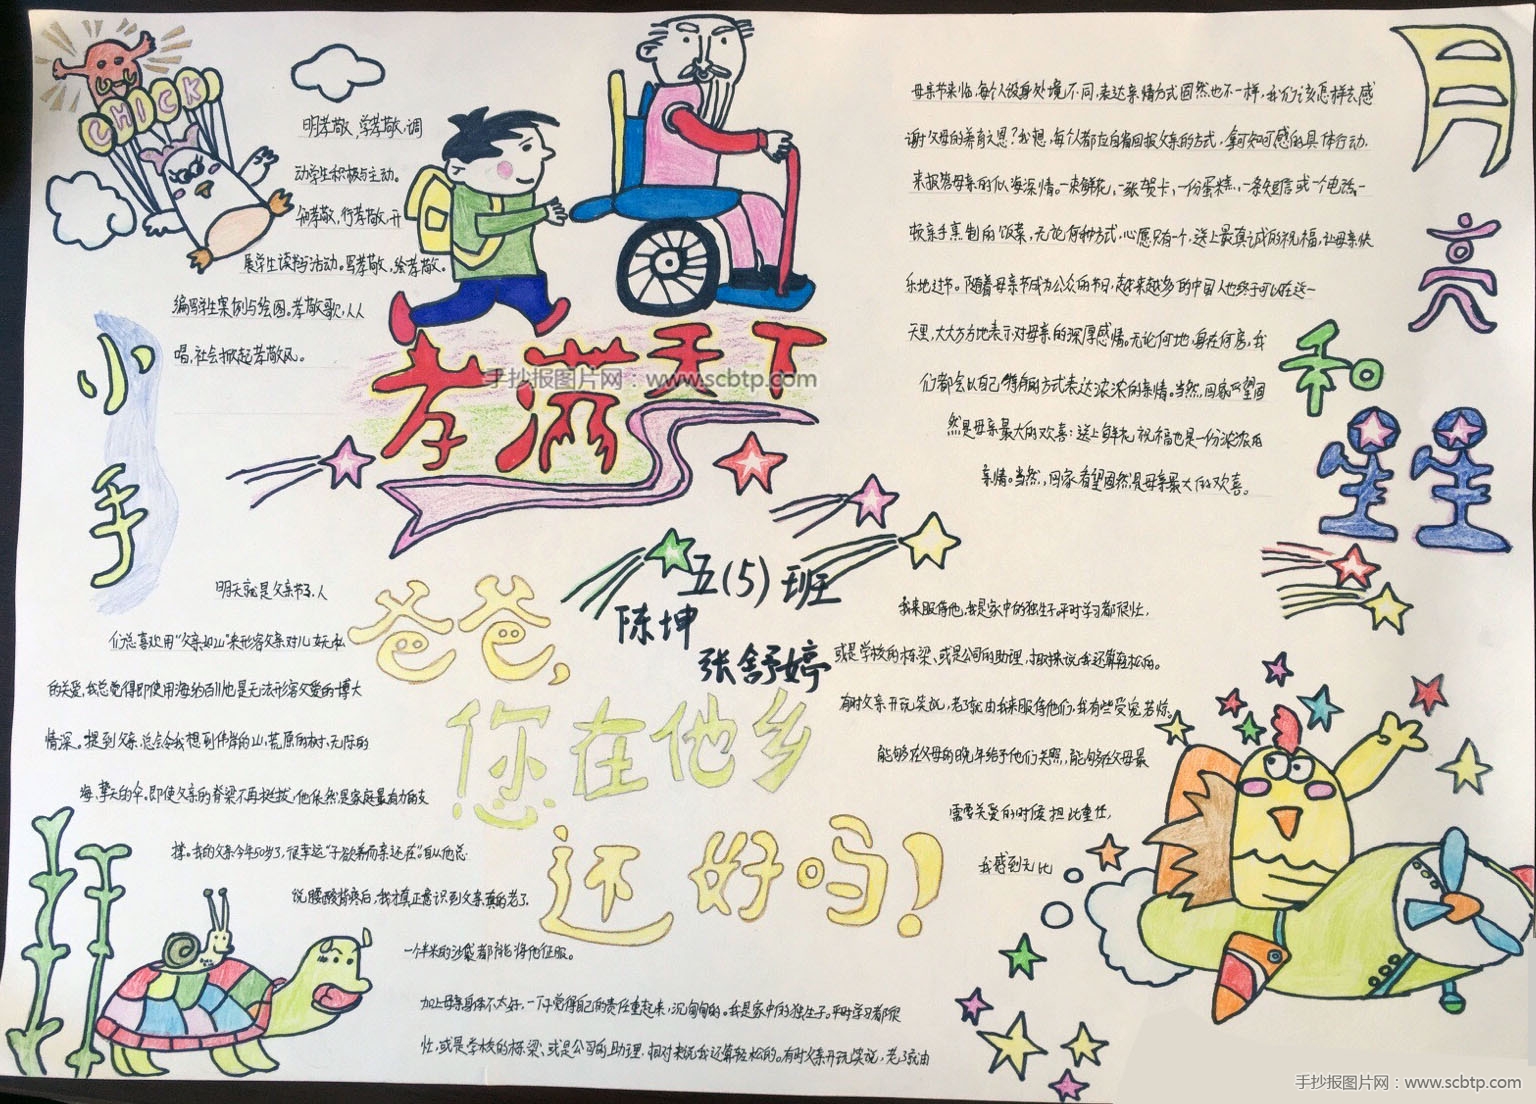 CHICK
小手
明孝敬、学孝敬,调
动学生积极与主动。
知孝敬,行孝敬,开
展学生读书活动。写孝敬,绘孝敬。
编写学生案例与绘图。孝敬歌,人人
唱,社会掀起孝敬风。
孝满天下
手抄报图片网:www.scbtp.com
月亮和星星
母亲节来临,每个人设身处境不同,表达亲情方式固然也不一样,我们该怎样去感
谢父母的养育之恩?我想,每个人都应自省回报父亲的方式,拿可知可感的具体行动,
来报答母亲的似海深情。一束鲜花,一张贺卡,一份蛋糕,一条短信或一个电话,一
顿亲手烹制的饭菜,无论何种方式,心愿只有一个,送上最真诚的祝福,让母亲快
乐地过节。随着母亲节成为公众的节日,越来越多的中国人也终于可以在这一
天里,大大方方地表示对母亲的深厚感情。无论何地,身在何房,我
们都会以自己特有的方式表达浓浓的亲情。当然,回家
固
然是母亲最大的欢喜:送上鲜花,祝福也是一份浓浓的
亲情。当然,回家看望固然是母亲最大的欢喜。
五(5)班
陈坤
张舒婷
爸爸,
您在他乡
还好吗!
明天就是父亲节了,人
们总喜欢用“父亲如山”来形容父亲对儿女无私
的关爱,我总觉得即使用海纳百川也是无法形容父爱的博大
情深。提到父亲,总会令我想到伟岸的山,荒原的树,无际的
海,擎天的伞。即使父亲的脊梁不再挺拔,他依然是家庭最有力的支
撑。我的父亲今年50岁了,很幸运“子欲养而亲还在”。自从他总
说腰酸背疼后,我才真正意识到父亲真的老了.
一个半米的沙袋都能将他征服。
加上母亲身体不太好,一下子觉得自己的责任重起来,沉甸甸的。我是家中的独生子。平时学习都很
忙,或是学校的栋梁、或是公司的助理,相对来说我还算轻松的。有时父亲开玩笑说,老了就由
我来服侍他,我是家中的独生子,平时学习都很忙,
或是学校的栋梁、或是公司的助理,相对来说我还算轻松的。
有时父亲开玩笑说,老了就由我来服侍他们,我有些受宠若惊。
能够在父母的晚年给予他们关照,能够在父母最
需要关爱的时候担此重任,
我感到无比
手抄报图片网:www.scbtp.com